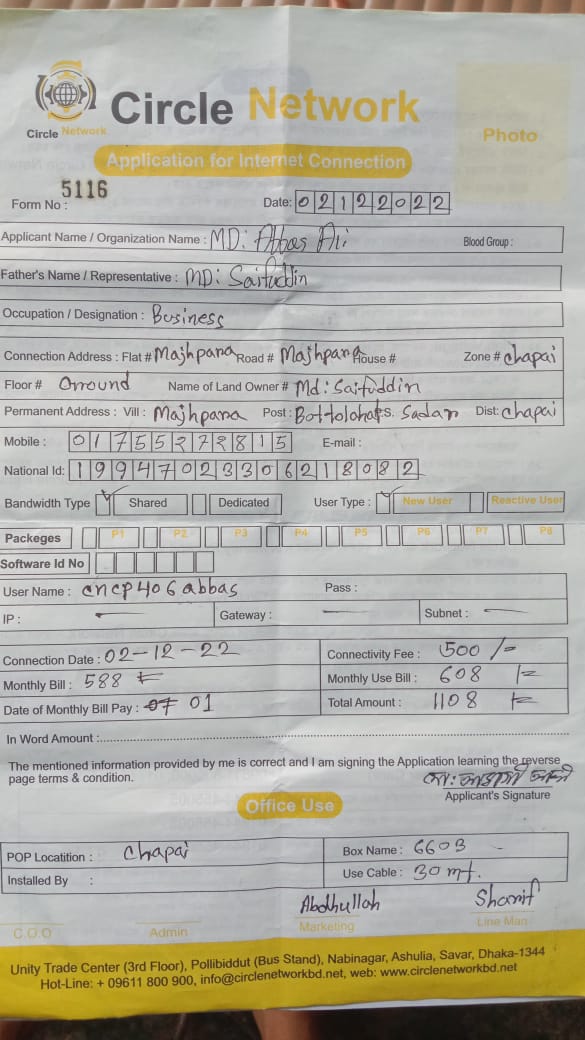 Circle Network
Circle Network
Photo
Application for Internet Connection
Form No : 5116
Date: 02122022
Applicant Name / Organization Name : MD: Abbas Ali Blood Group :
Father's Name / Representative : MD: Saifuddin
Occupation / Designation : Business
Connection Address : Flat # Majhpara Road # Majhpara House # Zone # Chapai
Floor # Ground Name of Land Owner # Md: Saifuddin
Permanent Address : Vill : Majhpara Post : P.S. Sadar Dist: Chapai
Mobile : 01755272815 E-mail :
National Id: 19947023306218082
Bandwidth Type Shared Dedicated User Type : New User Reactive User
Packeges P1 P2 P3 P4 P5 P6 P7 P8
Software Id No
User Name : cncp406abbas Pass :
IP : – Gateway : – Subnet : –
Connection Date : 02-12-22 Connectivity Fee : 500 /=
Monthly Bill : 588 Monthly Use Bill : 608 /=
Date of Monthly Bill Pay : 07 01 Total Amount : 1108 /=
In Word Amount :
The mentioned information provided by me is correct and I am signing the Application learning the reverse
page terms & condition.
Applicant's Signature
Office Use
POP Locatition : Chapai Box Name : 6603
Installed By : Use Cable : 30 mt.
Abdhullah Sharif
C.O.O Admin Marketing Line Man
Unity Trade Center (3rd Floor), Pollibiddut (Bus Stand), Nabinagar, Ashulia, Savar, Dhaka-1344
Hot-Line: + 09611 800 900, info@circlenetworkbd.net, web: www.circlenetworkbd.net